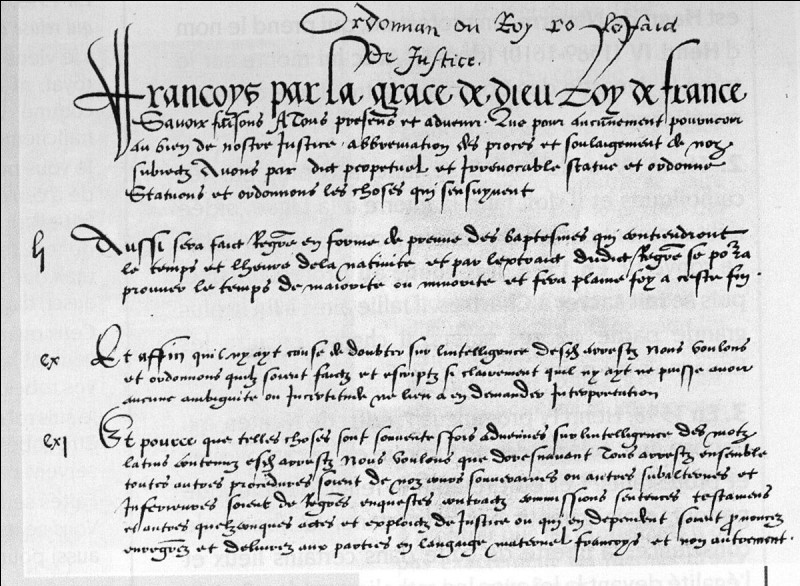 Ordonnan du Roy
De Justice.
Francoys par la grace de dieu Roy de france
Savoir faisons A Tous presens et advenir. Que pour aucunnement pourvoir
au bien de nostre Justice. abbreviation des proces et soulaigement de noz
subiectz Avons par dict perpetuel et Irrevocable statue et ordonne
Statuons et ordonnons les choses qui sensuyvent
Aussi sera faict Regre en forme de preuve des baptesmes qui contiendront
le temps et lheure de la nativite et par lextraict dudict Regre se porra
prouver le temps de maiorite ou minorite et fera plaine foy a ceste fin.
cx Et affin quil ny ayt cause de doubter sur lintelligence desd arrestz Nous voulons
et ordonnons quilz soient faictz et escriptz si clairement quil ny ayt ne puisse avoir
aucune ambiguite ou Incertitude ne lieu a en demander Interpretation
cxj Et pource que telles choses sont souventesfois advenues sur lintelligence des motz
latins contenuz esd arrestz Nous voulons que doresnavant Tous arrestz ensemble
toutes autres procedures soient de noz cours souveraines ou autres subalternes et
Inferieures soient de Regres enquestes contractz commissions sentences testamens
et autres quelzconques actes et exploictz de Justice ou qui en dependent soient pnoncez
enregrez et delivrez aux parties en langage maternel francoys et non autrement.
est Hen
prend le nom
d'Henri IV (1589-1610)